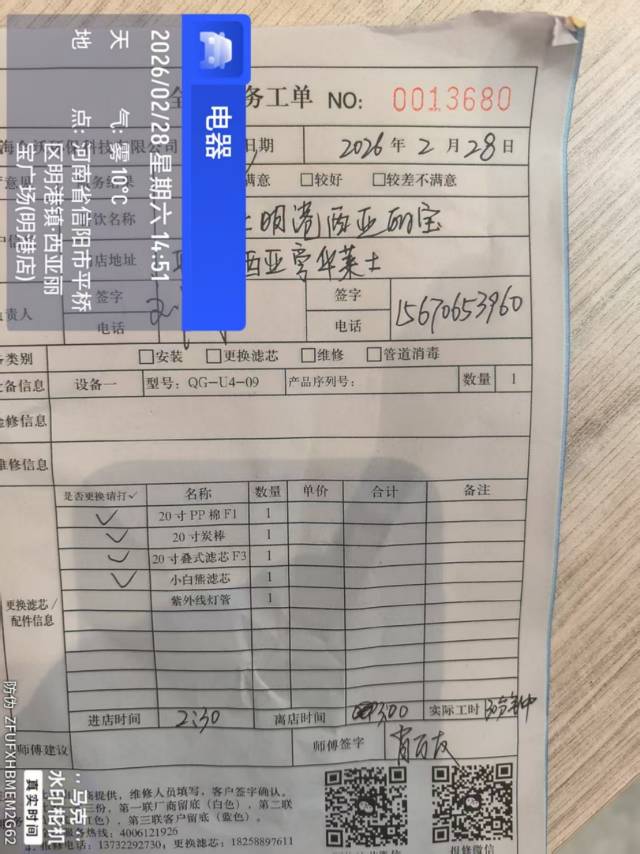 电器
2026/02/28 星期六 14:51
天 气: 雾 10℃
地 点: 河南省信阳市平桥
区明港镇·西亚丽
宝广场(明港店)
务工单 NO: 0013680
日期 2026 年 2 月 28 日
满意 □较好 □较差不满意
饮名称 明港西亚丽宝
店地址 西亚 华莱士
签字 签字
责人
电话 电话 15670653960
类别 □安装 □更换滤芯 □维修 □管道消毒
备信息 设备一 型号: QG-U4-09 产品序列号: 数量 1
修信息
维修信息
是否更换请打✓ 名称 数量 单价 合计 备注
✓ 20寸PP棉F1 1
✓ 20寸炭棒 1
✓ 20寸叠式滤芯F3 1
✓ 小白熊滤芯 1
紫外线灯管 1
更换滤芯/
配件信息
进店时间 2:30 离店时间 3:00 实际工时 30分钟
师傅建议 师傅签字
商提供，维修人员填写，客户签字确认。
三份，第一联厂商留底（白色），第二联
，第三联客户留底（蓝色）。
服务热线: 4006121926
报修电话: 13732292730，更换滤芯: 18258897611
报修微信
马克
水印相机
真实时间
防伪 ZFUFXHBMEM2G62